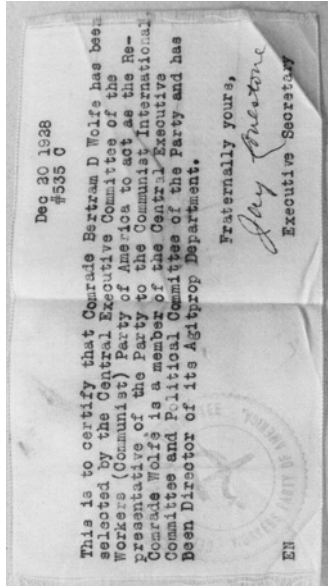 Dec 20 1928
#535 C
This is to certify that Comrade Bertram D Wolfe has been
selected by the Central Executive Committee of the
Workers (Communist) Party of America to act as the Re-
presentative of the Party to the Communist International.
Comrade Wolfe is a member of the Central Executive
Committee and Political Committee of the Party and has
Been Director of its Agitprop Department.
Fraternally yours,
Jay Lovestone
Executive Secretary
EN
WORKERS PARTY OF AMERICA